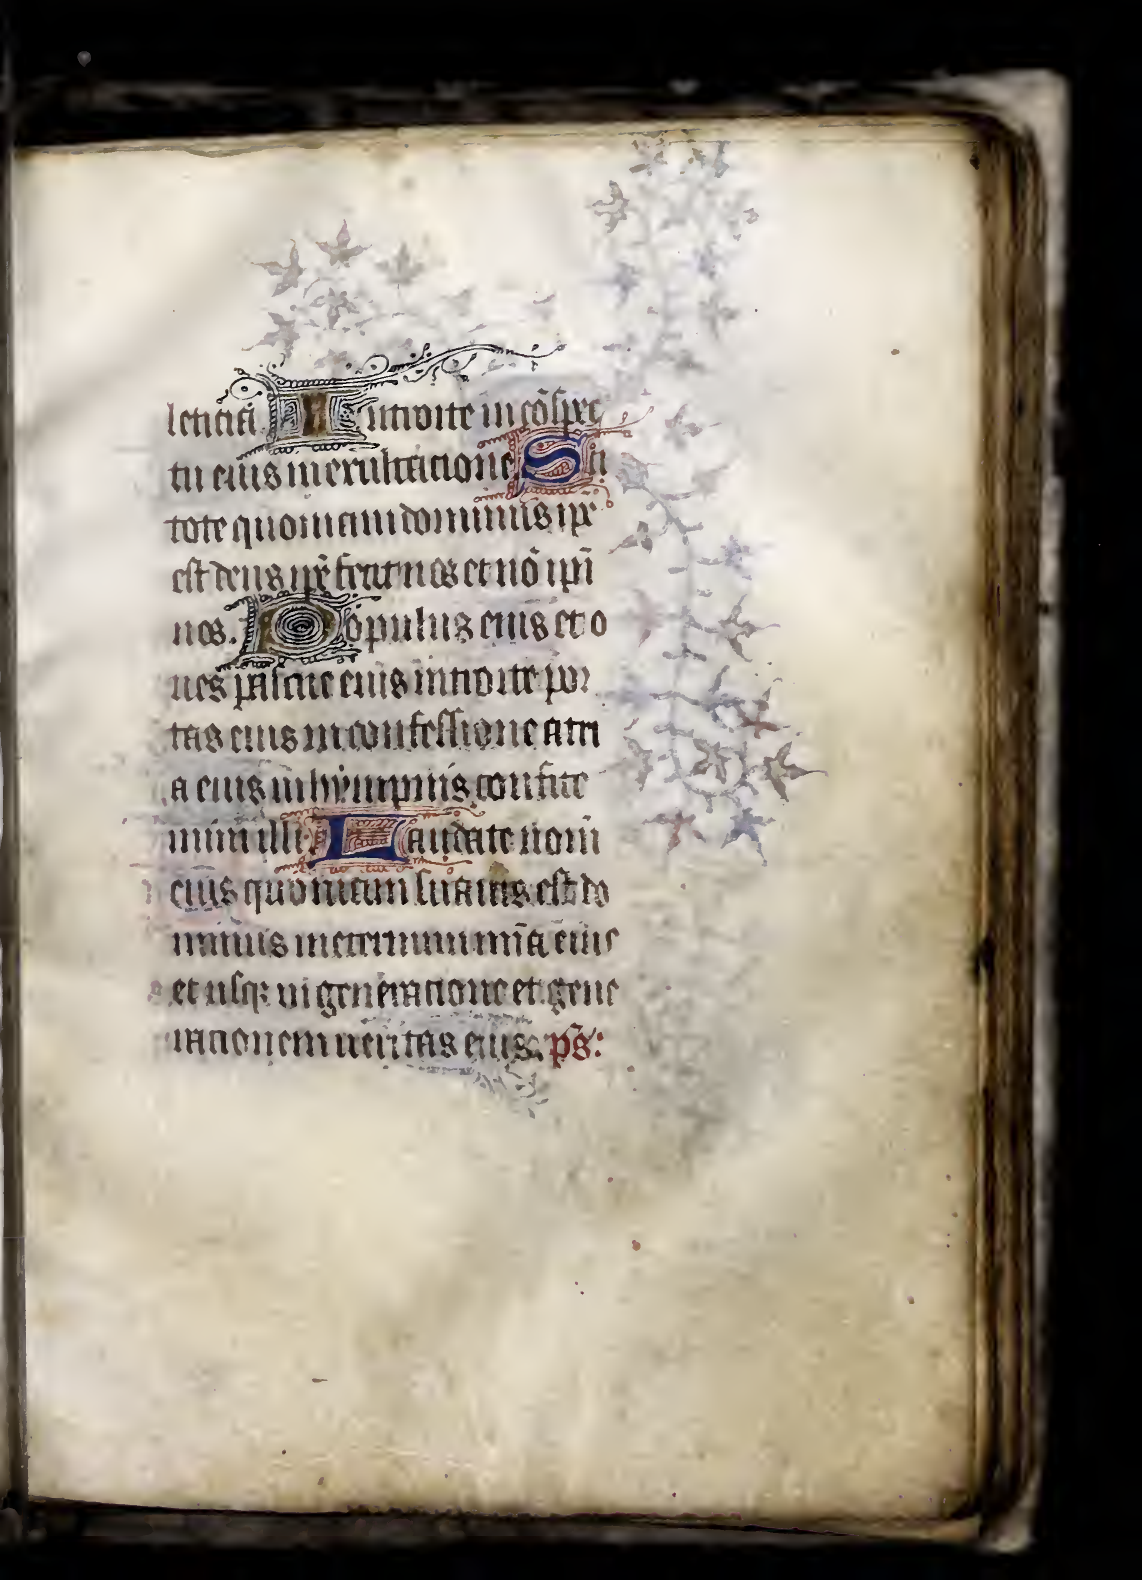 leticia Introite in cōspec
tu eius in exultatione Sci
tote quoniam dominus ip̄e
est deus ip̄e fecit nos et nō ip̄i
nos. Populus eius et o
ues pascue eius introite por
tas eius in confessione atri
a eius in hympnis confite
mini illi. Laudate nom̄
eius quoniam suauis est do
minus in eternum mīa eius
et usq; in generatione et gene
rationem ueritas eius. ps̄: